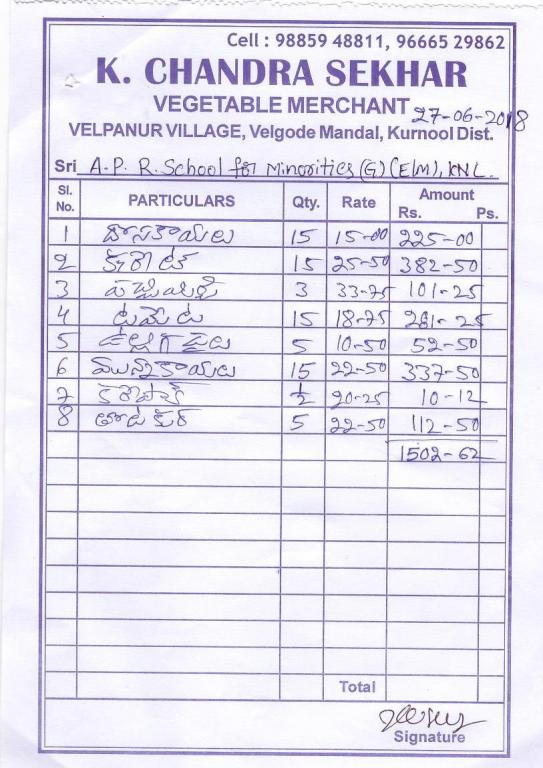 Cell : 98859 48811, 96665 29862
K. CHANDRA SEKHAR
VEGETABLE MERCHANT 27-06-2018
VELPANUR VILLAGE, Velgode Mandal, Kurnool Dist.
Sri A.P.R. School for Minorities (G) (E/M), KNL.
Sl. No. PARTICULARS Qty. Rate Amount Rs. Ps.
1 దోసకాయలు 15 15-00 225-00
2 క్యారెట్ 15 25-50 382-50
3 పచ్చిమిర్చి 3 33-75 101-25
4 టమేట 15 18-75 281-25
5 ఉల్లిగడ్డలు 5 10-50 52-50
6 మునక్కాయలు 15 22-50 337-50
7 కరేపాక్ ½ 20-25 10-12
8 తోటకూర 5 22-50 112-50
1502-62
Total
Signature